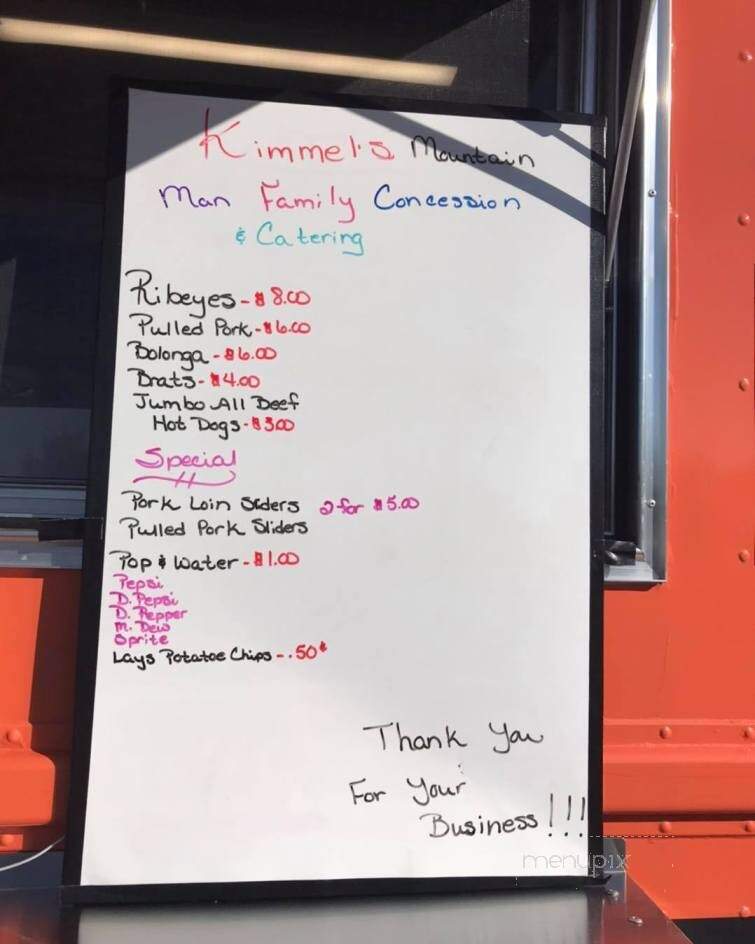 Kimmel's Mountain
Man Family Concession
& Catering
Ribeyes - $8.00
Pulled Pork - $6.00
Bolonga - $6.00
Brats - $4.00
Jumbo All Beef
Hot Dogs - $3.00
Special
Pork Loin Sliders 2 for $5.00
Pulled Pork Sliders
Pop & Water - $1.00
Pepsi
D. Pepsi
D. Pepper
M. Dew
Sprite
Lays Potatoe Chips - .50¢
Thank You
For Your
Business!!!
menupix